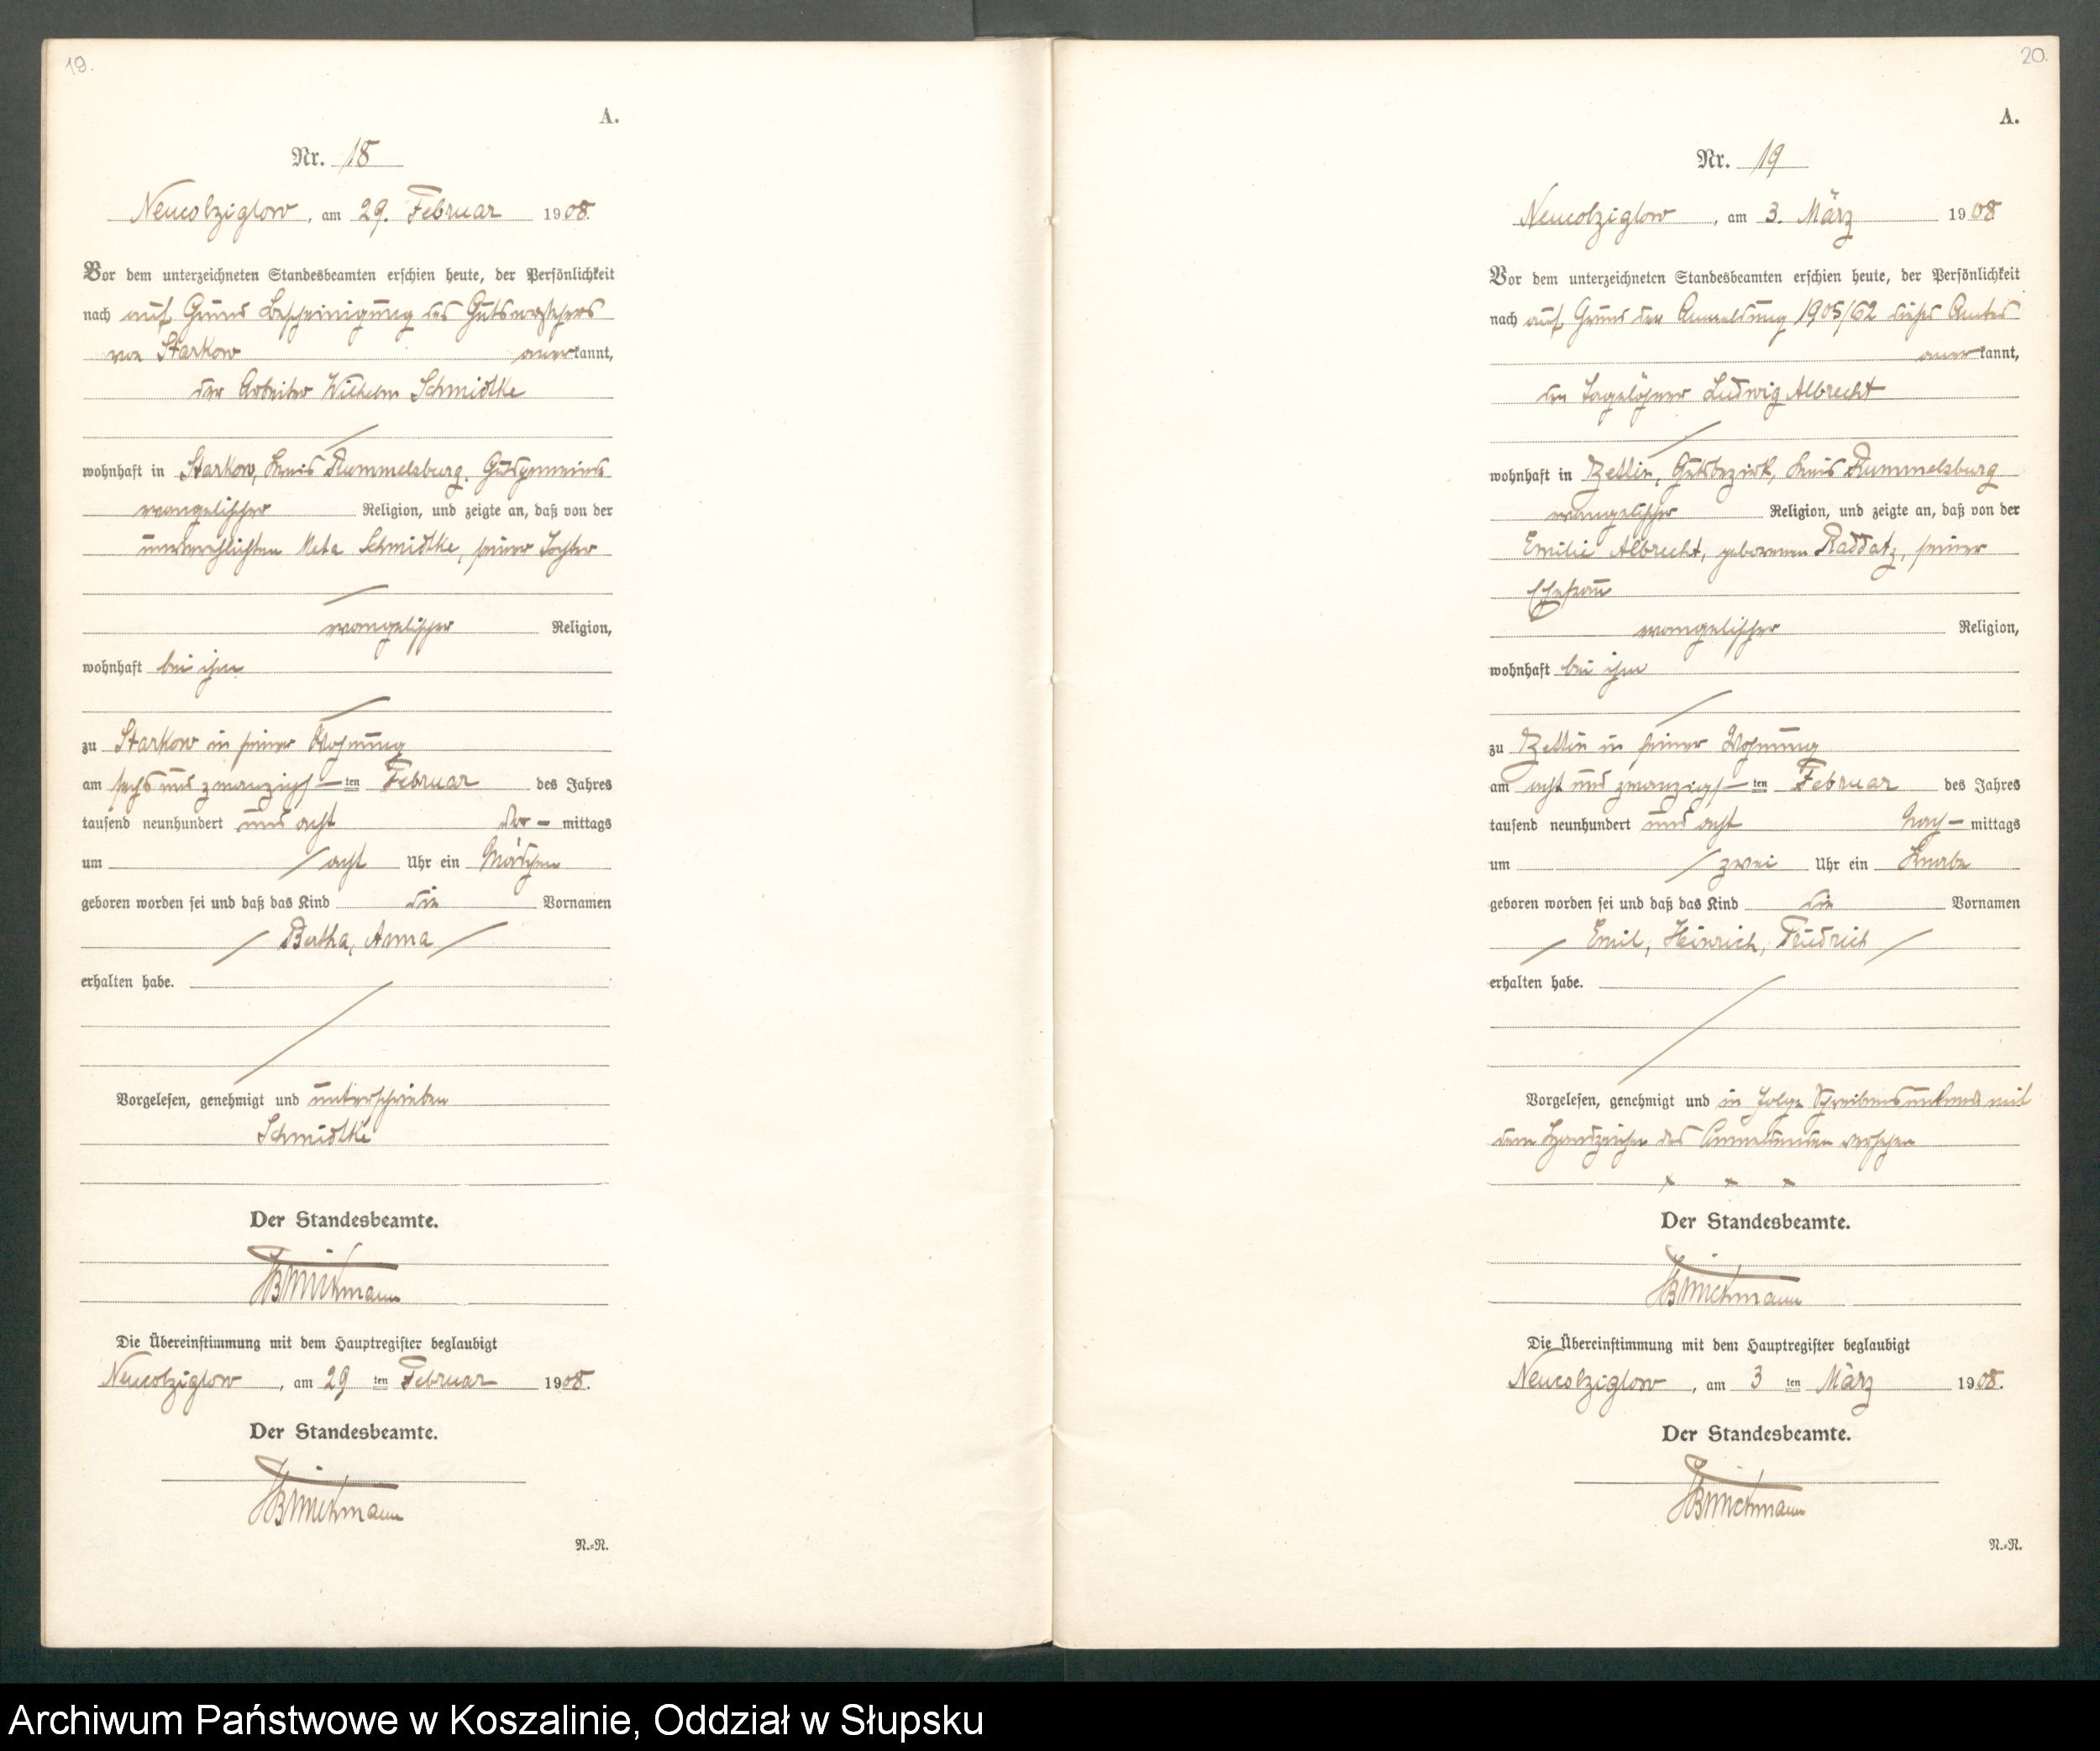 19.
A.
Nr. 18
Neucolziglow, am 29. Februar 1908.
Vor dem unterzeichneten Standesbeamten erschien heute, der Persönlichkeit
nach auf Grund Bescheinigung des Gutsvorstehers
von Starkow anerkannt,
der Arbeiter Wilhelm Schmidtke
wohnhaft in Starkow, Kreis Rummelsburg, Gutsgemeinde
evangelischer Religion, und zeigte an, daß von der
unverehelichten Meta Schmidtke, seiner Tochter
evangelischer Religion,
wohnhaft bei ihm
zu Starkow in seiner Wohnung
am sechs und zwanzigs-ten Februar des Jahres
tausend neunhundert und acht Vor-mittags
um acht Uhr ein Mädchen
geboren worden sei und daß das Kind die Vornamen
Bertha, Anna
erhalten habe.
Vorgelesen, genehmigt und unterschrieben
Schmidtke
Der Standesbeamte.
Die Übereinstimmung mit dem Hauptregister beglaubigt
Neucolziglow, am 29ten Februar 1908.
Der Standesbeamte.
N.=R.
20.
A.
Nr. 19
Neucolziglow, am 3. März 1908
Vor dem unterzeichneten Standesbeamten erschien heute, der Persönlichkeit
nach auf Grund der Anmeldung 1905/62 dieses Amtes
anerkannt,
der Tagelöhner Ludwig Albrecht
wohnhaft in Zettin, Gutsbezirk, Kreis Rummelsburg
evangelischer Religion, und zeigte an, daß von der
Emilie Albrecht, geborenen Raddatz, seiner
Ehefrau
evangelischer Religion,
wohnhaft bei ihm
zu Zettin in seiner Wohnung
am acht und zwanzigs-ten Februar des Jahres
tausend neunhundert und acht Nach-mittags
um zwei Uhr ein Knabe
geboren worden sei und daß das Kind die Vornamen
Emil, Heinrich, Friedrich
erhalten habe.
Vorgelesen, genehmigt und in Folge Schreibensunkunde mit
dem Handzeichen des Anmeldenden versehen
x x x
Der Standesbeamte.
Die Übereinstimmung mit dem Hauptregister beglaubigt
Neucolziglow, am 3ten März 1908.
Der Standesbeamte.
N.=R.
Archiwum Państwowe w Koszalinie, Oddział w Słupsku